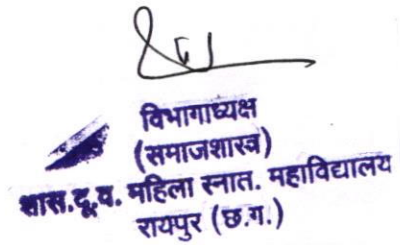 विभागाध्यक्ष
(समाजशास्त्र)
शास.दू.व. महिला स्नात. महाविद्यालय
रायपुर (छ.ग.)